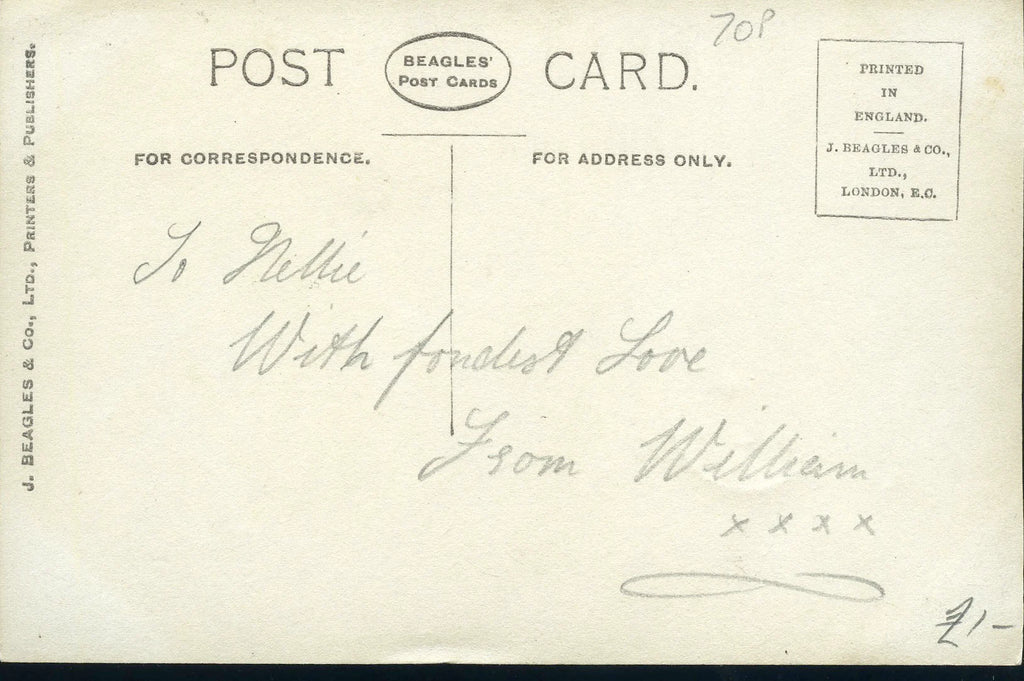 70P
POST CARD.
BEAGLES'
POST CARDS
FOR CORRESPONDENCE.
FOR ADDRESS ONLY.
PRINTED
IN
ENGLAND.
J. BEAGLES & CO.,
LTD.,
LONDON, E.C.
J. BEAGLES & CO., LTD., PRINTERS & PUBLISHERS.
To Nellie
With fondest Love
From William
x x x x
£1-